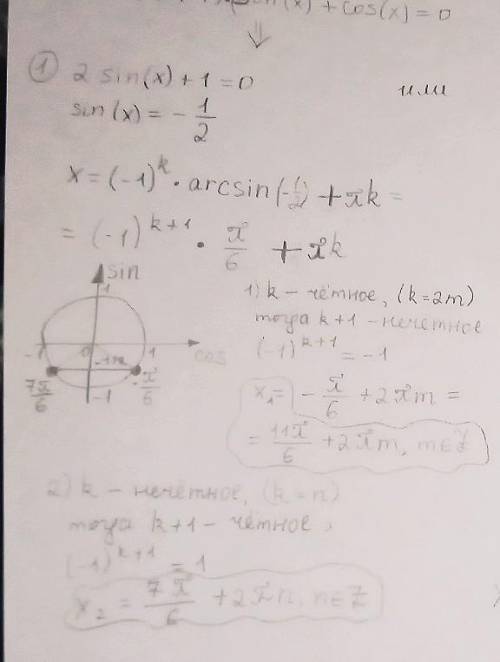 sin(x) + cos(x) = 0
⇓
① 2 sin(x) + 1 = 0
или
sin(x) = - 1/2
x = (-1)^k · arcsin(-1/2) + πk =
= (-1)^{k+1} · π/6 + πk
sin
1
-1 0 -1/2 1 cos
7π/6 -1 -π/6
1) k – чётное, (k=2m)
тогда k+1 – нечётное
(-1)^{k+1} = -1
x₁ = - π/6 + 2πm =
= 11π/6 + 2πm, m∈Z
2) k – нечётное, (k=n)
тогда k+1 – чётное,
(-1)^{k+1} = 1
x₂ = 7π/6 + 2πn, n∈Z